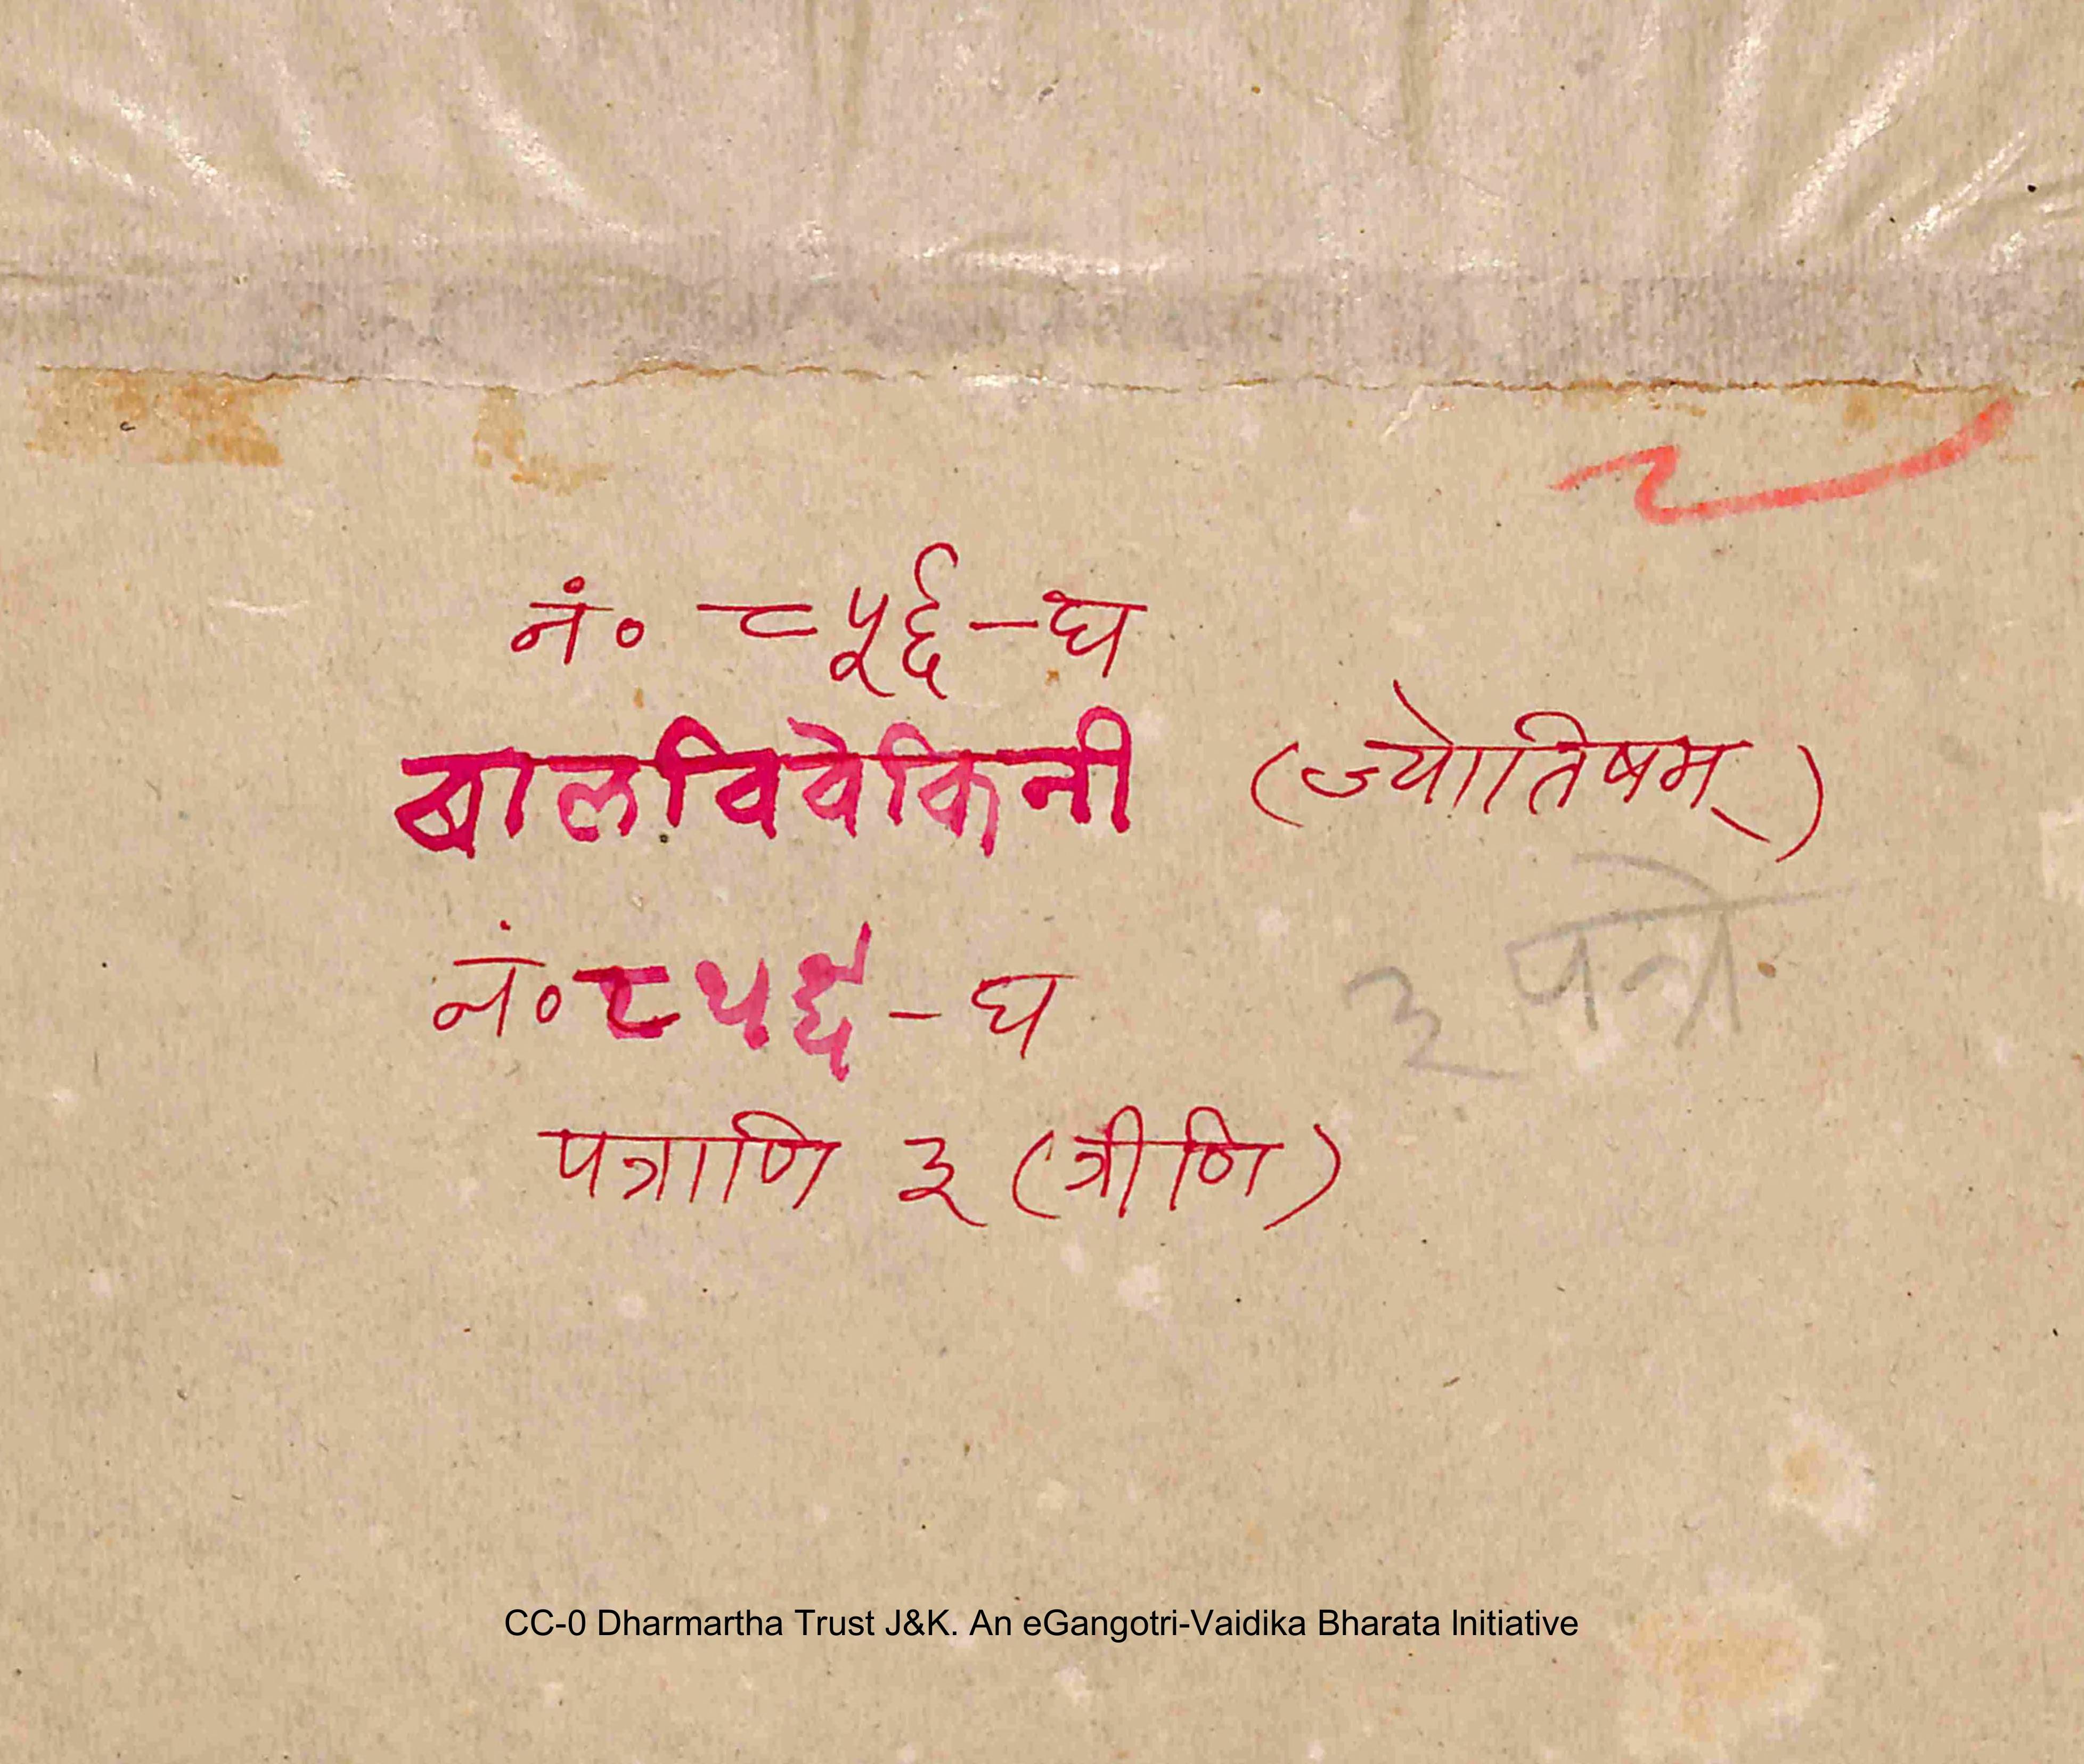 नं० ८५९-घ
बालविवेकिनी (ज्योतिषम्)
३ पत्रे
नं० ८५९ - घ
पत्राणि ३ (त्रीणि)
CC-0 Dharmartha Trust J&K. An eGangotri-Vaidika Bharata Initiative